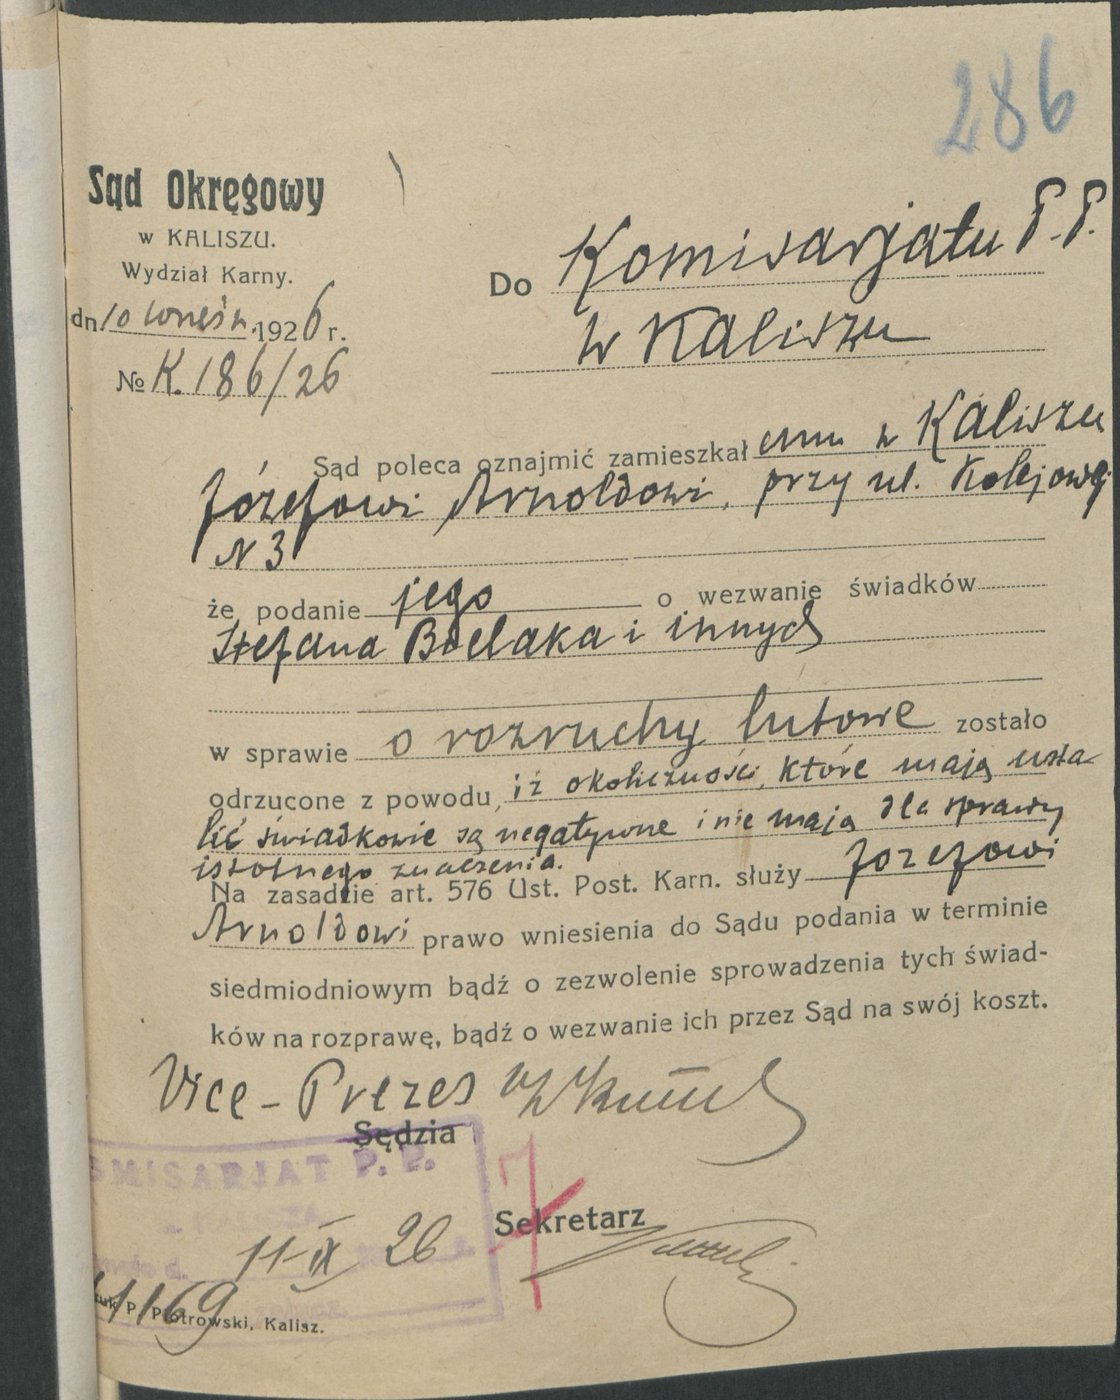 286
Sąd Okręgowy
w KALISZU.
Wydział Karny.
dn 10 wrześn. 1926 r.
№ K. 186/26
Do Komisarjatu P.P.
w Kaliszu
Sąd poleca oznajmić zamieszkałemu w Kaliszu
Józefowi Arnoldowi, przy ul. Kolejowej
N 3
że podanie jego o wezwanie świadków
Stefana Bielaka i innych
w sprawie o rozruchy lutowe zostało
odrzucone z powodu, iż okoliczności, które mają usta-
lić świadkowie są negatywne i nie mają dla sprawy
istotnego znaczenia.
Na zasadzie art. 576 Ust. Post. Karn. służy Józefowi
Arnoldowi prawo wniesienia do Sądu podania w terminie
siedmiodniowym bądź o zezwolenie sprowadzenia tych świad-
ków na rozprawę, bądź o wezwanie ich przez Sąd na swój koszt.
Vice-Prezes
Sędzia
OMISARJAT P. P.
Sekretarz
11 IX 26
1169
P. Piotrowski, Kalisz.